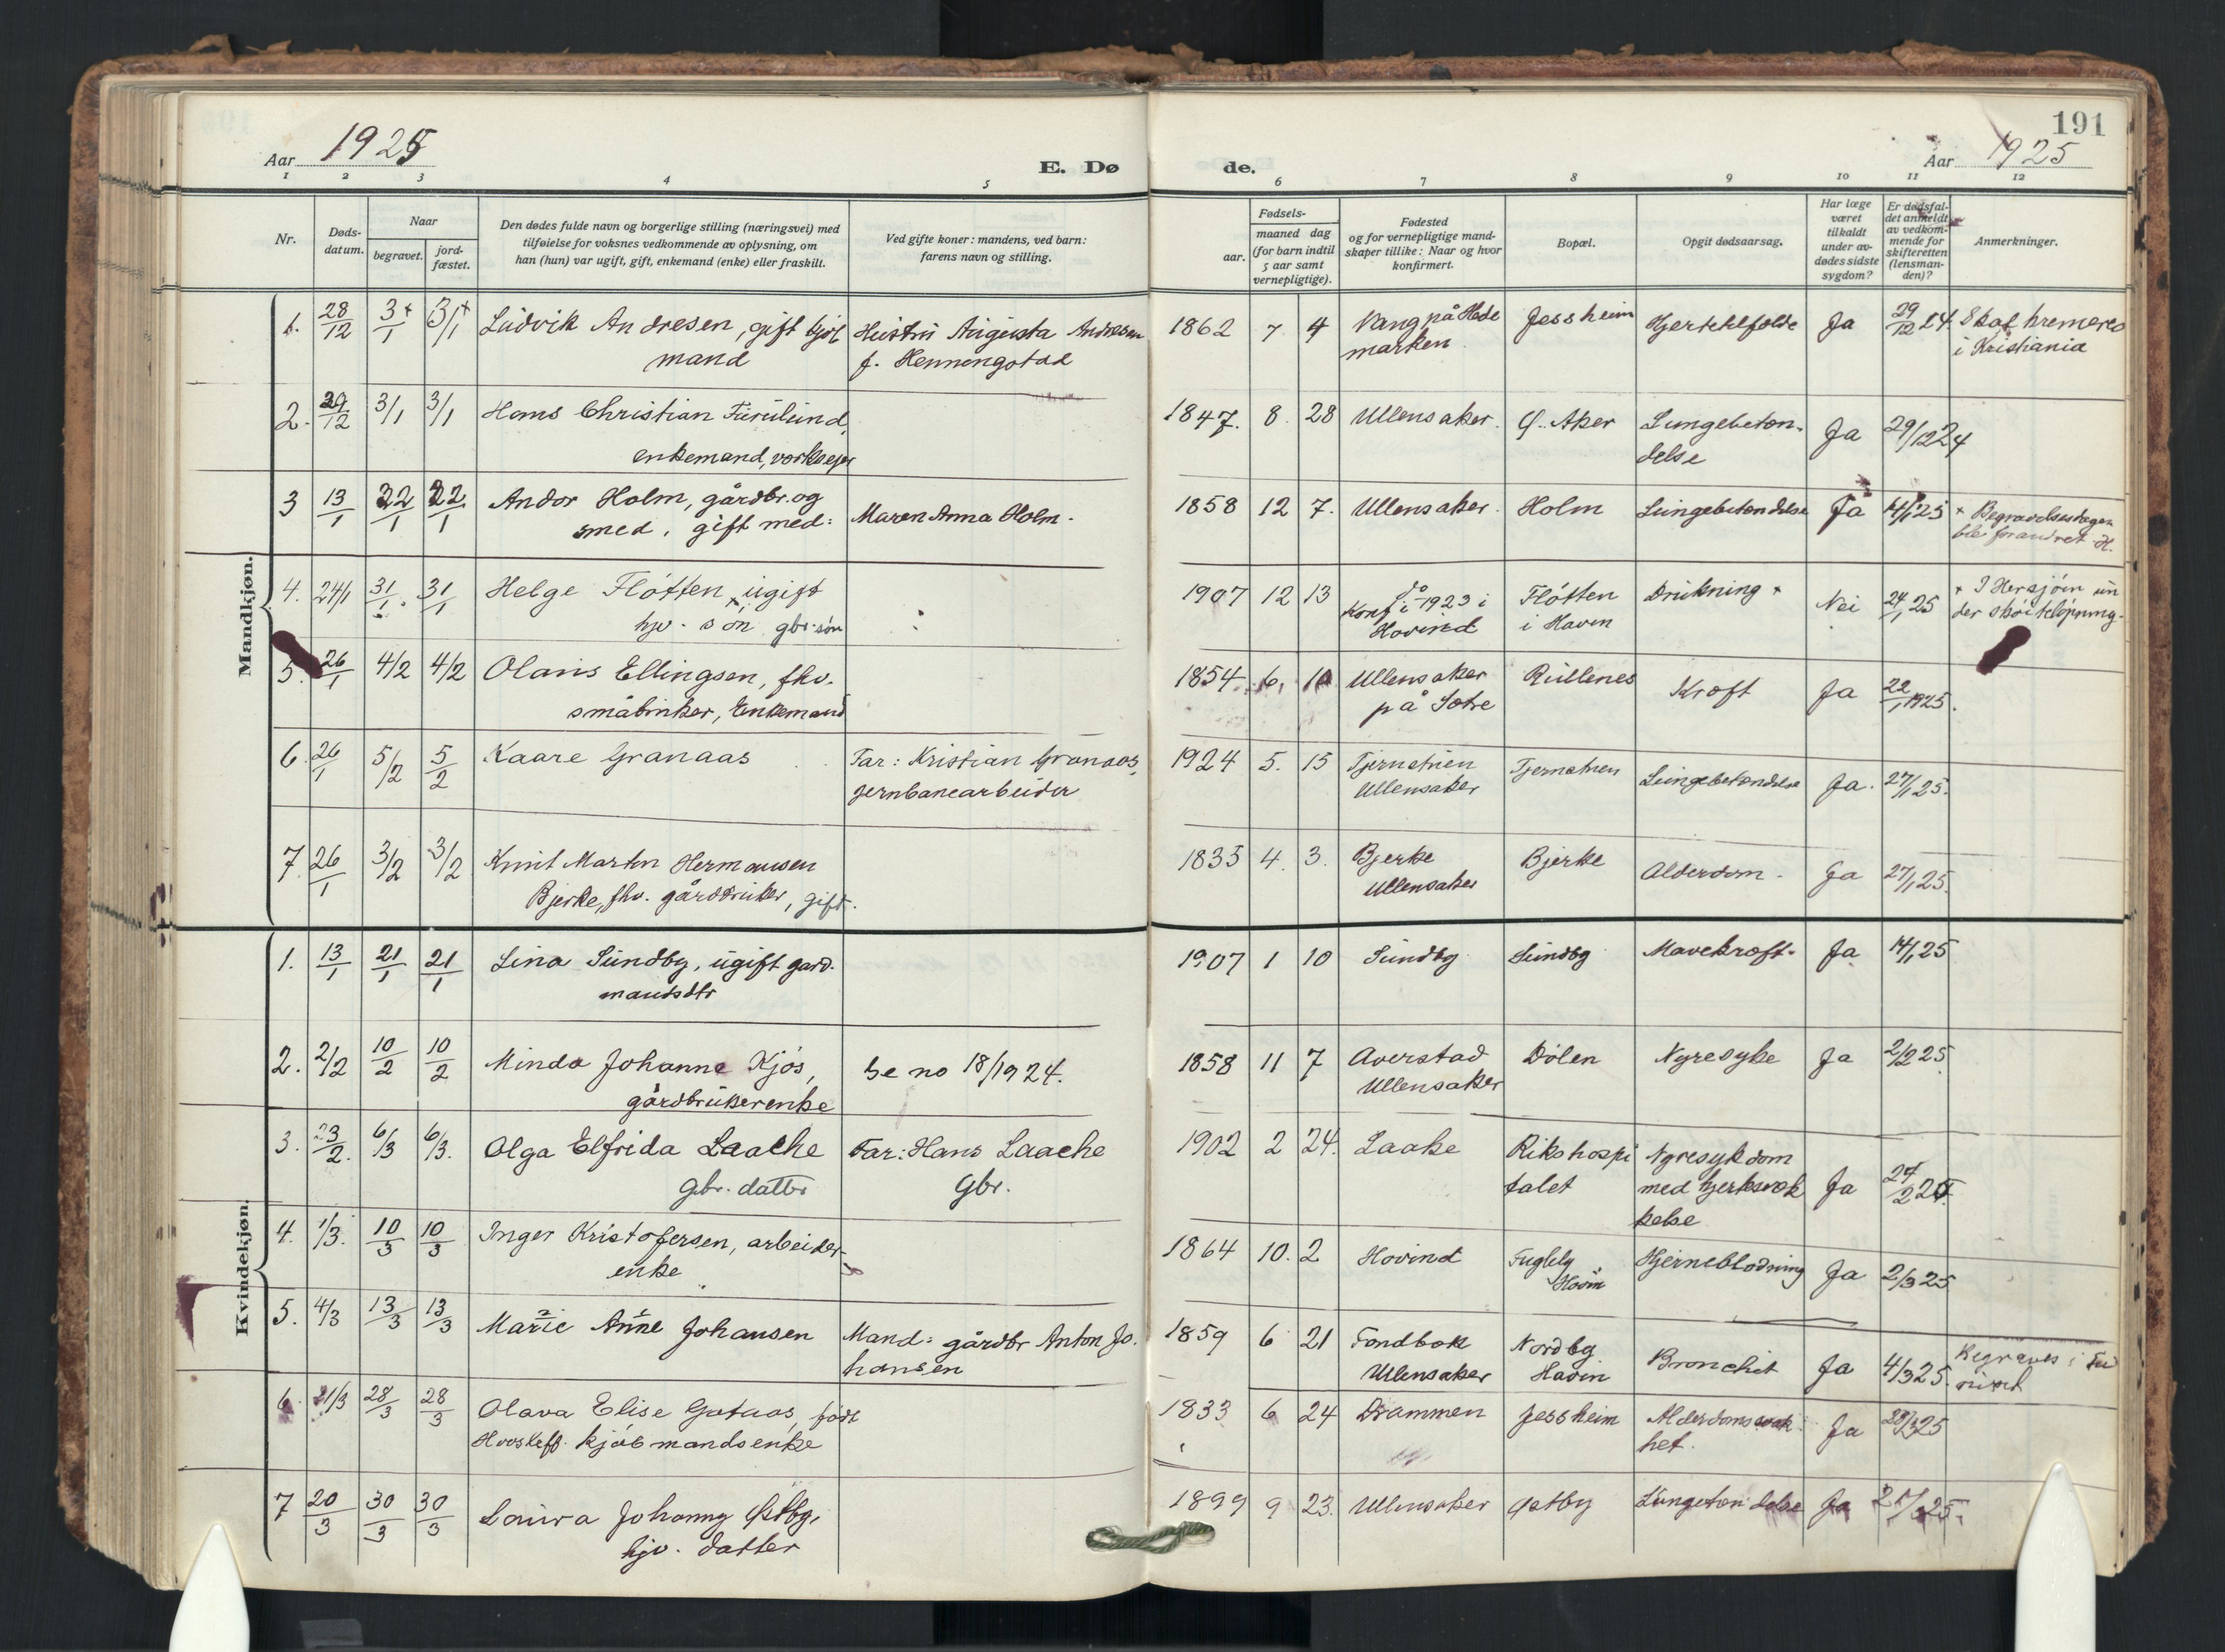 191
Aar 1925
E. Døde.
Aar 1925
1 2 3 4 5 6 7 8 9 10 11 12
Nr.
Døds-
datum.
Naar
begravet.
jord-
fæstet.
Den dødes fulde navn og borgerlige stilling (næringsvei) med
tilføielse for voksnes vedkommende av oplysning, om
han (hun) var ugift, gift, enkemand (enke) eller fraskilt.
Ved gifte koner: mandens, ved barn:
farens navn og stilling.
Fødsels-
aar. maaned dag
(for barn indtil
5 aar samt
vernepligtige).
Fødested
og for vernepligtige mand-
skaper tillike: Naar og hvor
konfirmert.
Bopæl.
Opgit dødsaarsag.
Har læge
været
tilkaldt
under av-
dødes sidste
sygdom?
Er dødsfal-
det anmeldt
av vedkom-
mende for
skifteretten
(lensman-
den)?
Anmerkninger.
Mandkjøn.
1. 28/12 3/1 + 3/1 + Ludvik Andresen, gift kjøb
mand
Hustru Augusta Andresen
f. Hennengstad
1862 7 4 Vang på Hede
marken
Jessheim Hjertehlfælde Ja 29/12 24. Skal kremeres
i Kristiania
2. 29/12 3/1 3/1 Hans Christian Furulund,
enkemand, verkseier
1847. 8 28 Ullensaker. Ø. Aker Lungebeton-
delse
Ja 29/12 24
3 13/1 22/1 22/1 Andor Holm, gårdbr. og
smed, gift med:
Maren Anna Holm.
1858 12 7. Ullensaker. Holm Lungebetændelse Ja 14/1 25 + Begravelsesdagen
ble forandret. H.
4. 24/1 31/1 31/1 Helge Fløtten, ugift
hjv. søn gbr. søn
1907 12 13 do
Konf. i 1923 i
Hovind
Fløtten
i Hovin
Drukning + Nei 24/1 25 + I Hersjøin un
der skøiteløpning.
5. 26/1 4/2 4/2 Olaus Ellingsen, fhv.
småbruker, Enkemand
1854 6, 10 Ullensaker
på Sotre
Rullenes Kræft Ja 22/1 1925.
6. 26/1 5/2 5/2 Kaare Granaas
Far: Kristian Granaas,
jernbanearbeider
1924 5. 15 Tjernstuen
Ullensaker
Tjernstuen Lungebetændelse Ja. 27/1 25.
7. 26/1 3/2 3/2 Knut Martin Hermansen
Bjerke, fhv. gårdbruker, gift.
1835 4. 3. Bjerke
Ullensaker
Bjerke Alderdom. Ja 27/1 25.
Kvindekjøn.
1. 13/1 21/1 21/1 Lina Sundby, ugift gard.
mandsdtr
1907 1 10 Sundby Sundby Mavekræft. Ja 14/1 25
2. 2/2 10/2 10/2 Minda Johanne Kjós,
gårdbrukerenke
Se no 18/1924.
1858 11 7 Averstad
Ullensaker
Dølen Nyresyke Ja 2/2 25
3. 23/2. 6/3 6/3. Olga Elfrida Laache
gbr. datter
Far: Hans Laache
Gbr.
1902 2 24. Laake Rikshospi
talet
Nyresykdom
med hjertesvæk
kelse
Ja 24/2 25.
4. 1/3. 10/3 10/3 Inger Kristofersen, arbeider-
enke
1864 10. 2 Hovind Fugleby
Hovin
Hjerneblødning Ja 2/3 25
5. 4/3 13/3 13/3 Marie Anne Johansen
Mand: gårdbr Anton Jo.
hansen
1859 6 21 Fondbæk
Ullensaker
Nordby
Hovin
Bronchit Ja 4/3 25. Begraves i Fu
ruset
6. 21/3 28/3 28/3 Olava Elise Gotaas, født
kjøbmandsenke
1833 6 24 Drammen Jessheim Alderdomssvak
het.
Ja 25
7 20/3 30/3 30/3 Laura Johanny Østby,
hjv. datter
1899 9 23. Ullensaker Østby Ja